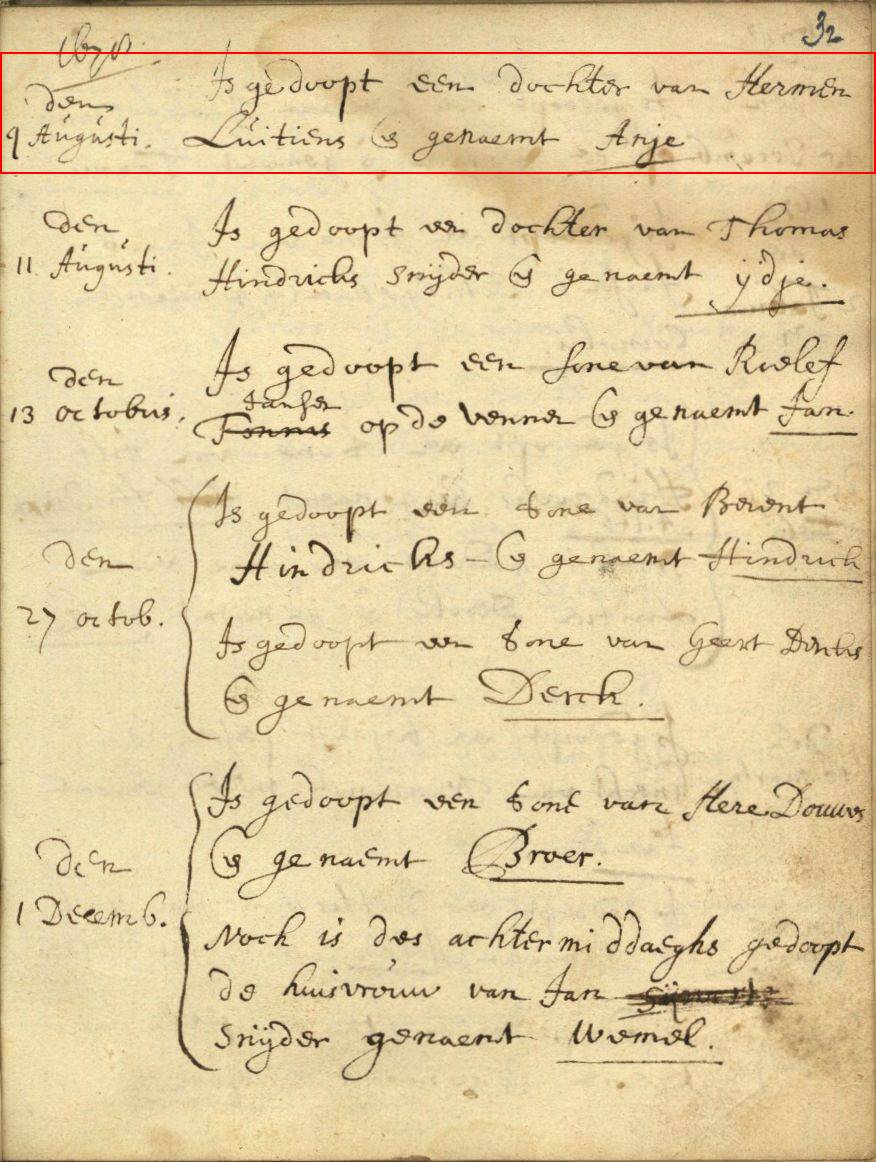 32
1678.
Is gedoopt een dochter van Hermen
den
9 Augusti. Luitiens & genaemt Anje
den Is gedoopt een dochter van Thomas
11 Augusti. Hindricks Snijder & genaemt ijdje.
Is gedoopt een sone van Roelef
den
Jansen
13 octobris. Tonnis op de venne & genaemt Jan.
Is gedoopt een sone van Berent
den Hindricks - & genaemt Hindrick
27 octob.
Is gedoopt een sone van Geert Dercks
& genaemt Derck.
Is gedoopt een sone van Here Douwes
den & genaemt Broer.
1 Decemb.
Noch is des achtermiddaeghs gedoopt
de huisvrouw van Jan
Snijder genaemt Wemel.